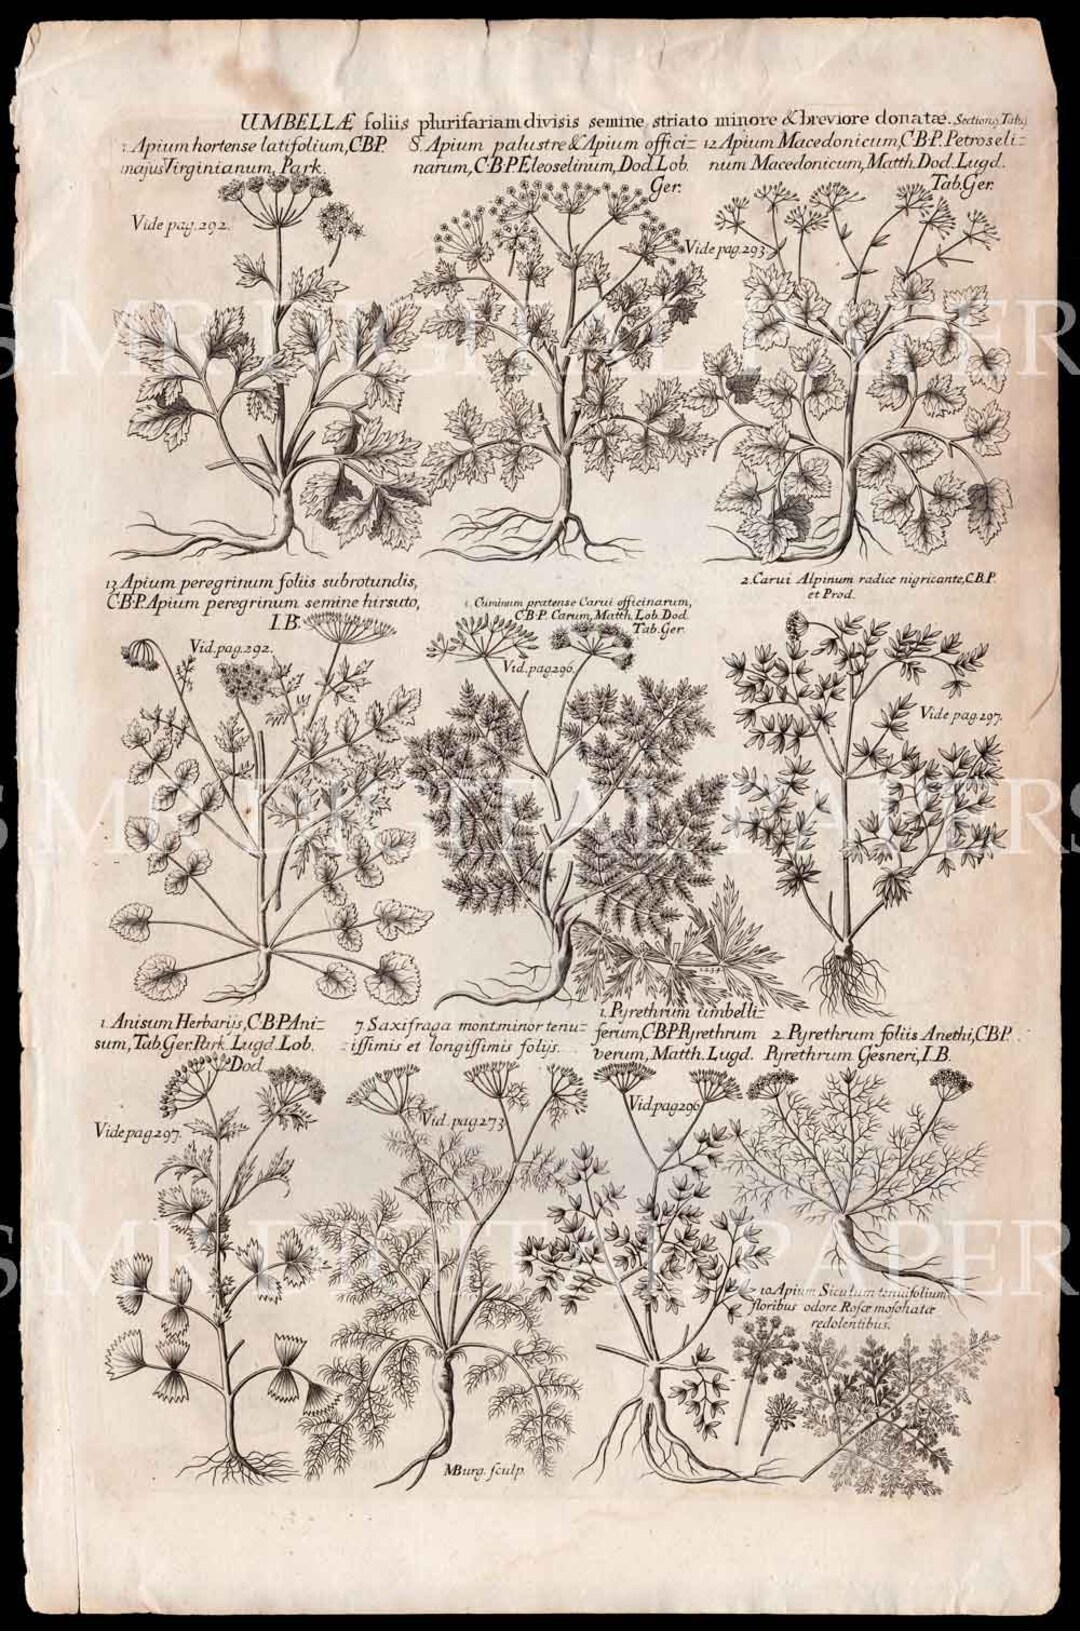 UMBELLÆ foliis plurifariam divisis semine striato minore & breviore donatæ.
Apium hortense latifolium, C.B.P.
majus Virginianum, Park.
8. Apium palustre & Apium offici=
narum, C.B.P. Eleoselinum, Dod. Lob.
Ger.
12 Apium Macedonicum, C.B.P. Petroseli=
num Macedonicum, Matth. Dod. Lugd.
Tab. Ger.
Vide pag. 292.
Vide pag. 293.
13 Apium peregrinum foliis subrotundis,
C.B.P. Apium peregrinum semine hirsuto,
I.B.
1. Cuminum pratense Carui officinarum,
C.B.P. Carum, Matth. Lob. Dod.
Tab. Ger.
2. Carui Alpinum radice nigricante, C.B.P.
et Prod.
Vid. pag. 292.
Vid. pag 296.
Vide pag. 297.
1. Anisum Herbarijs, C.B.P. Ani=
sum, Tab. Ger. Park. Lugd. Lob.
Dod.
7. Saxifraga mont. minor tenu=
issimis et longissimis folijs.
1. Pyrethrum umbelli=
ferum, C.B.P. Pyrethrum
verum, Matth. Lugd.
2. Pyrethrum foliis Anethi, C.B.P.
Pyrethrum Gesneri, I.B.
Vide pag 297.
Vid. pag 273
Vid. pag 296
10. Apium Siculum tenuifolium
floribus odore Rosæ moschatæ
redolentibus.
MBurg. sculp.
MR DIGITAL PAPERS
MR DIGITAL PAPERS
MR DIGITAL PAPERS